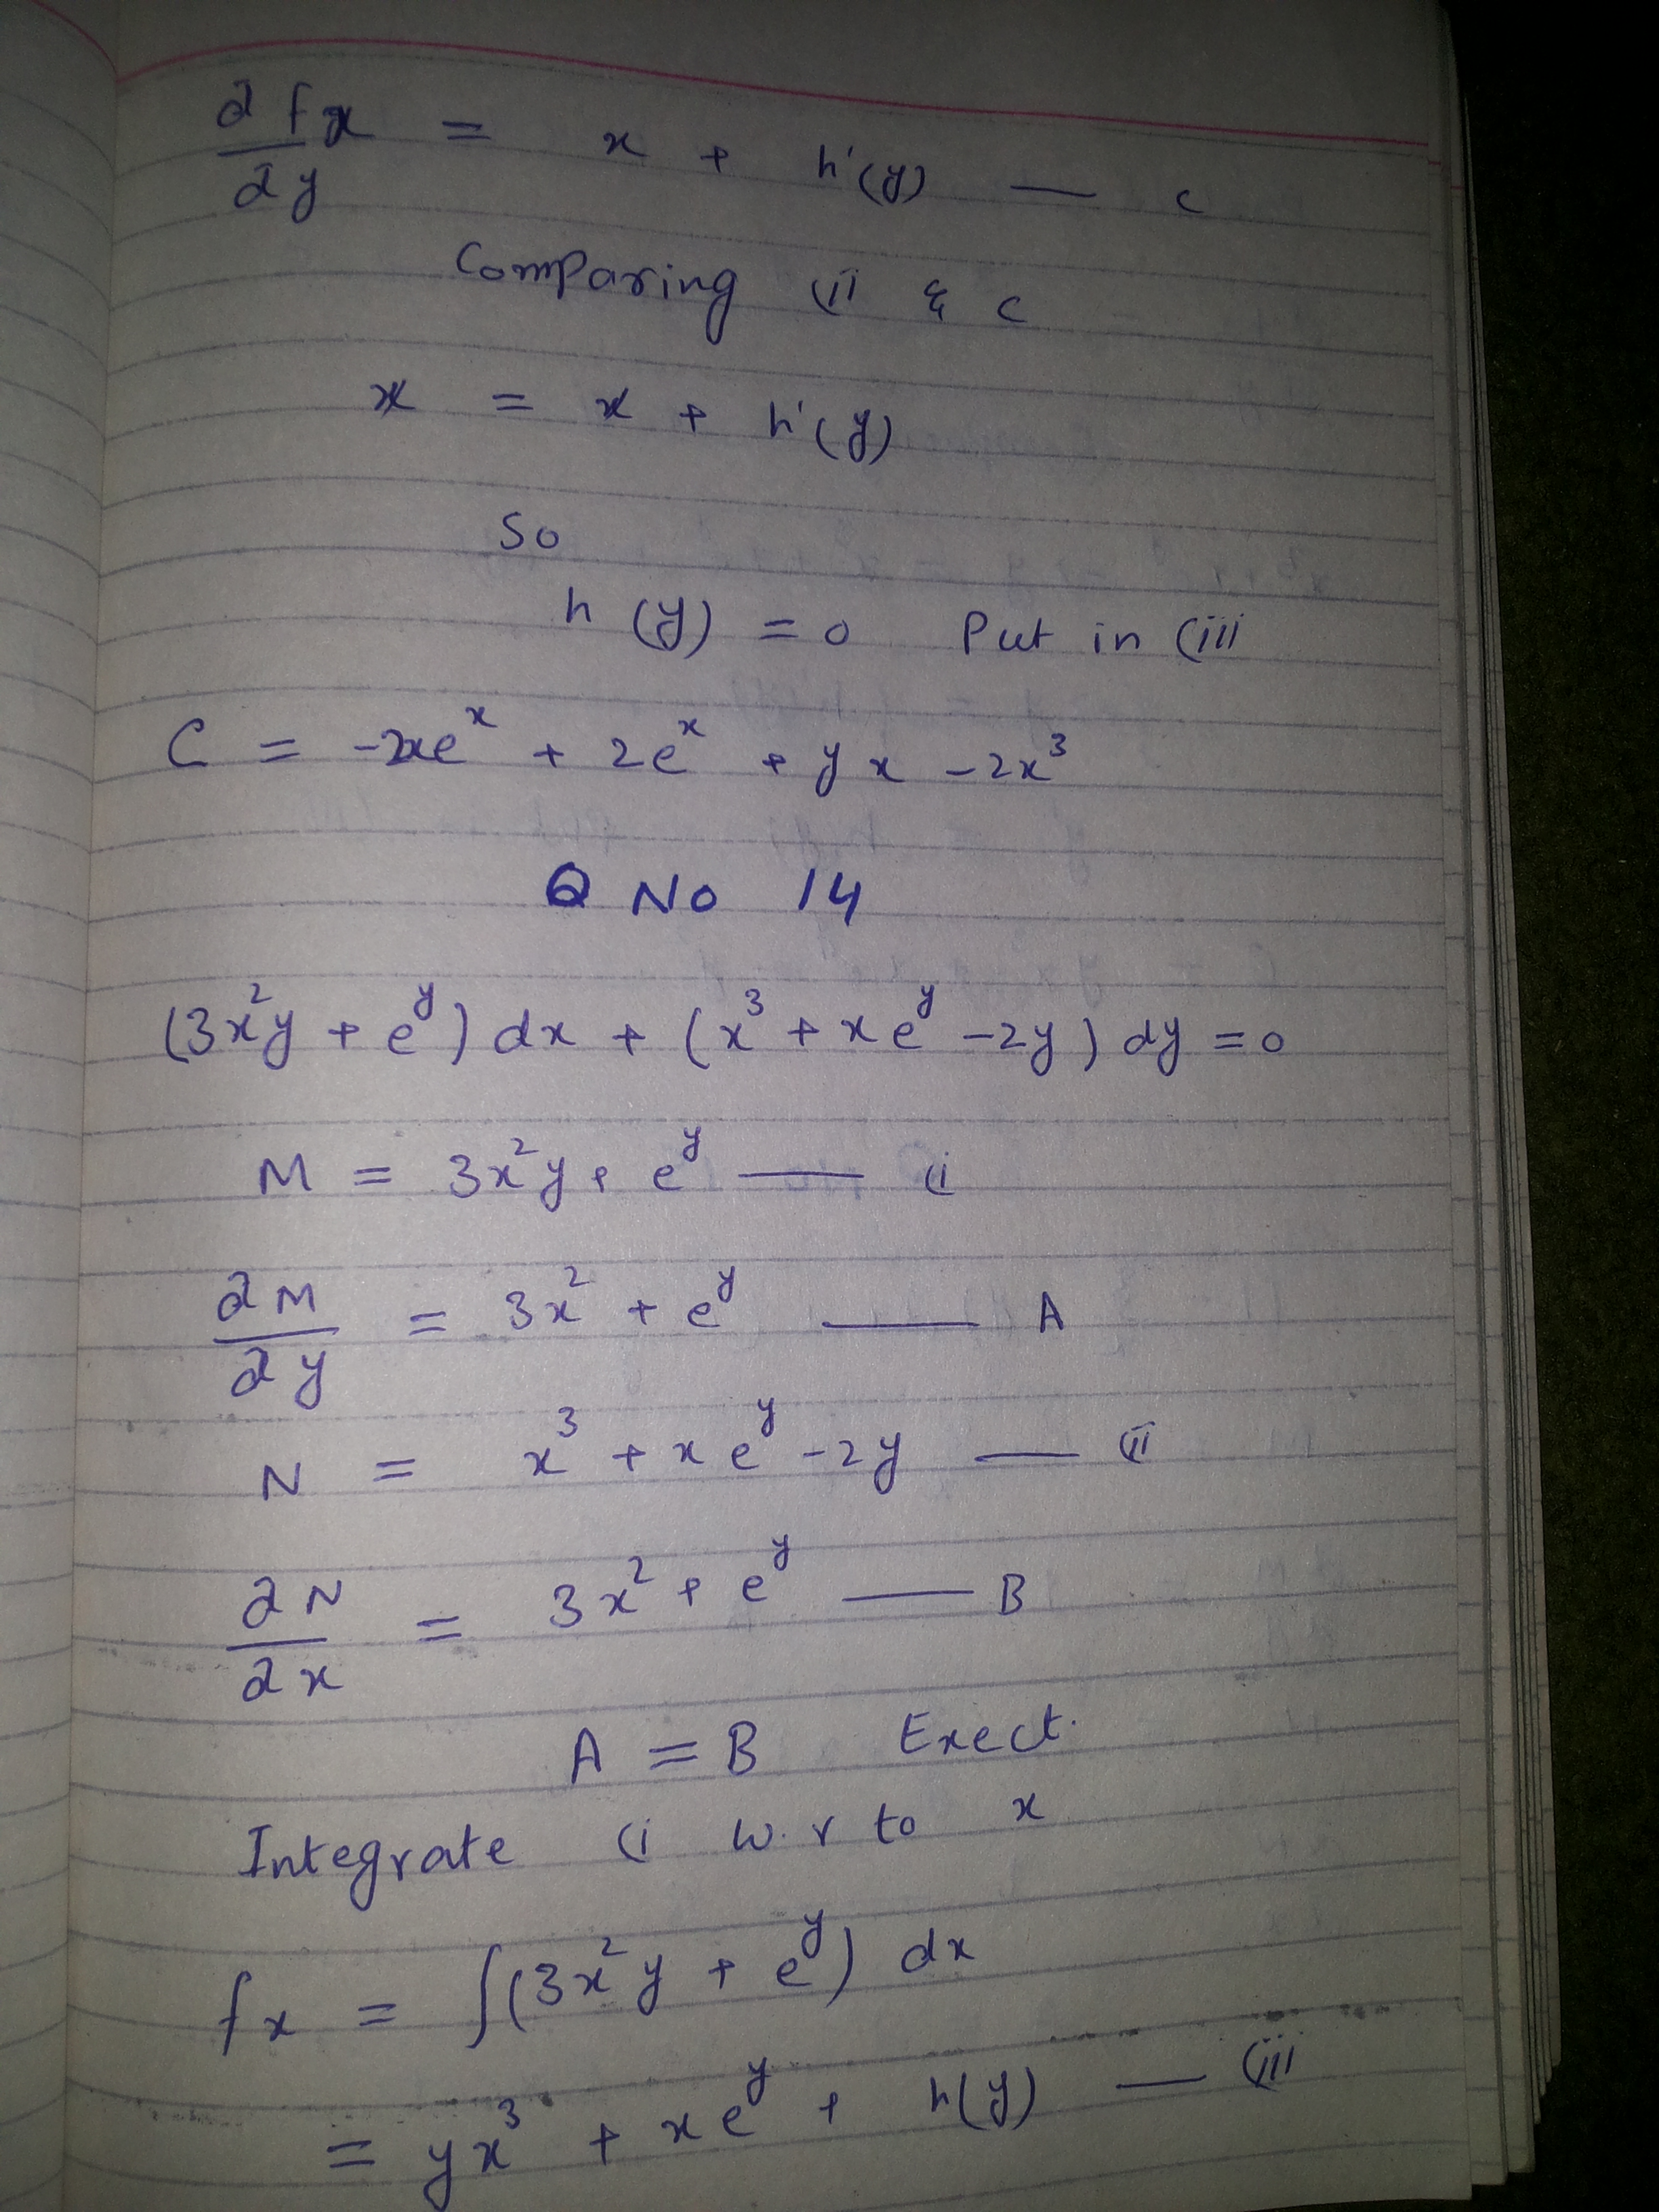 ∂fx/∂y = x + h'(y) — c
Comparing (ii & c
x = x + h'(y)
So
h (y) = 0 Put in (iii
C = -2xe^x + 2e^x + yx - 2x^3
Q No 14
(3x^2y + e^y) dx + (x^3 + xe^y - 2y) dy = 0
M = 3x^2y + e^y — (i
∂M/∂y = 3x^2 + e^y — A
N = x^3 + xe^y - 2y — (ii
∂N/∂x = 3x^2 + e^y — B
A = B Exect.
Integrate (i w.r to x
fx = ∫(3x^2y + e^y) dx
= yx^3 + xe^y + h(y) — (iii